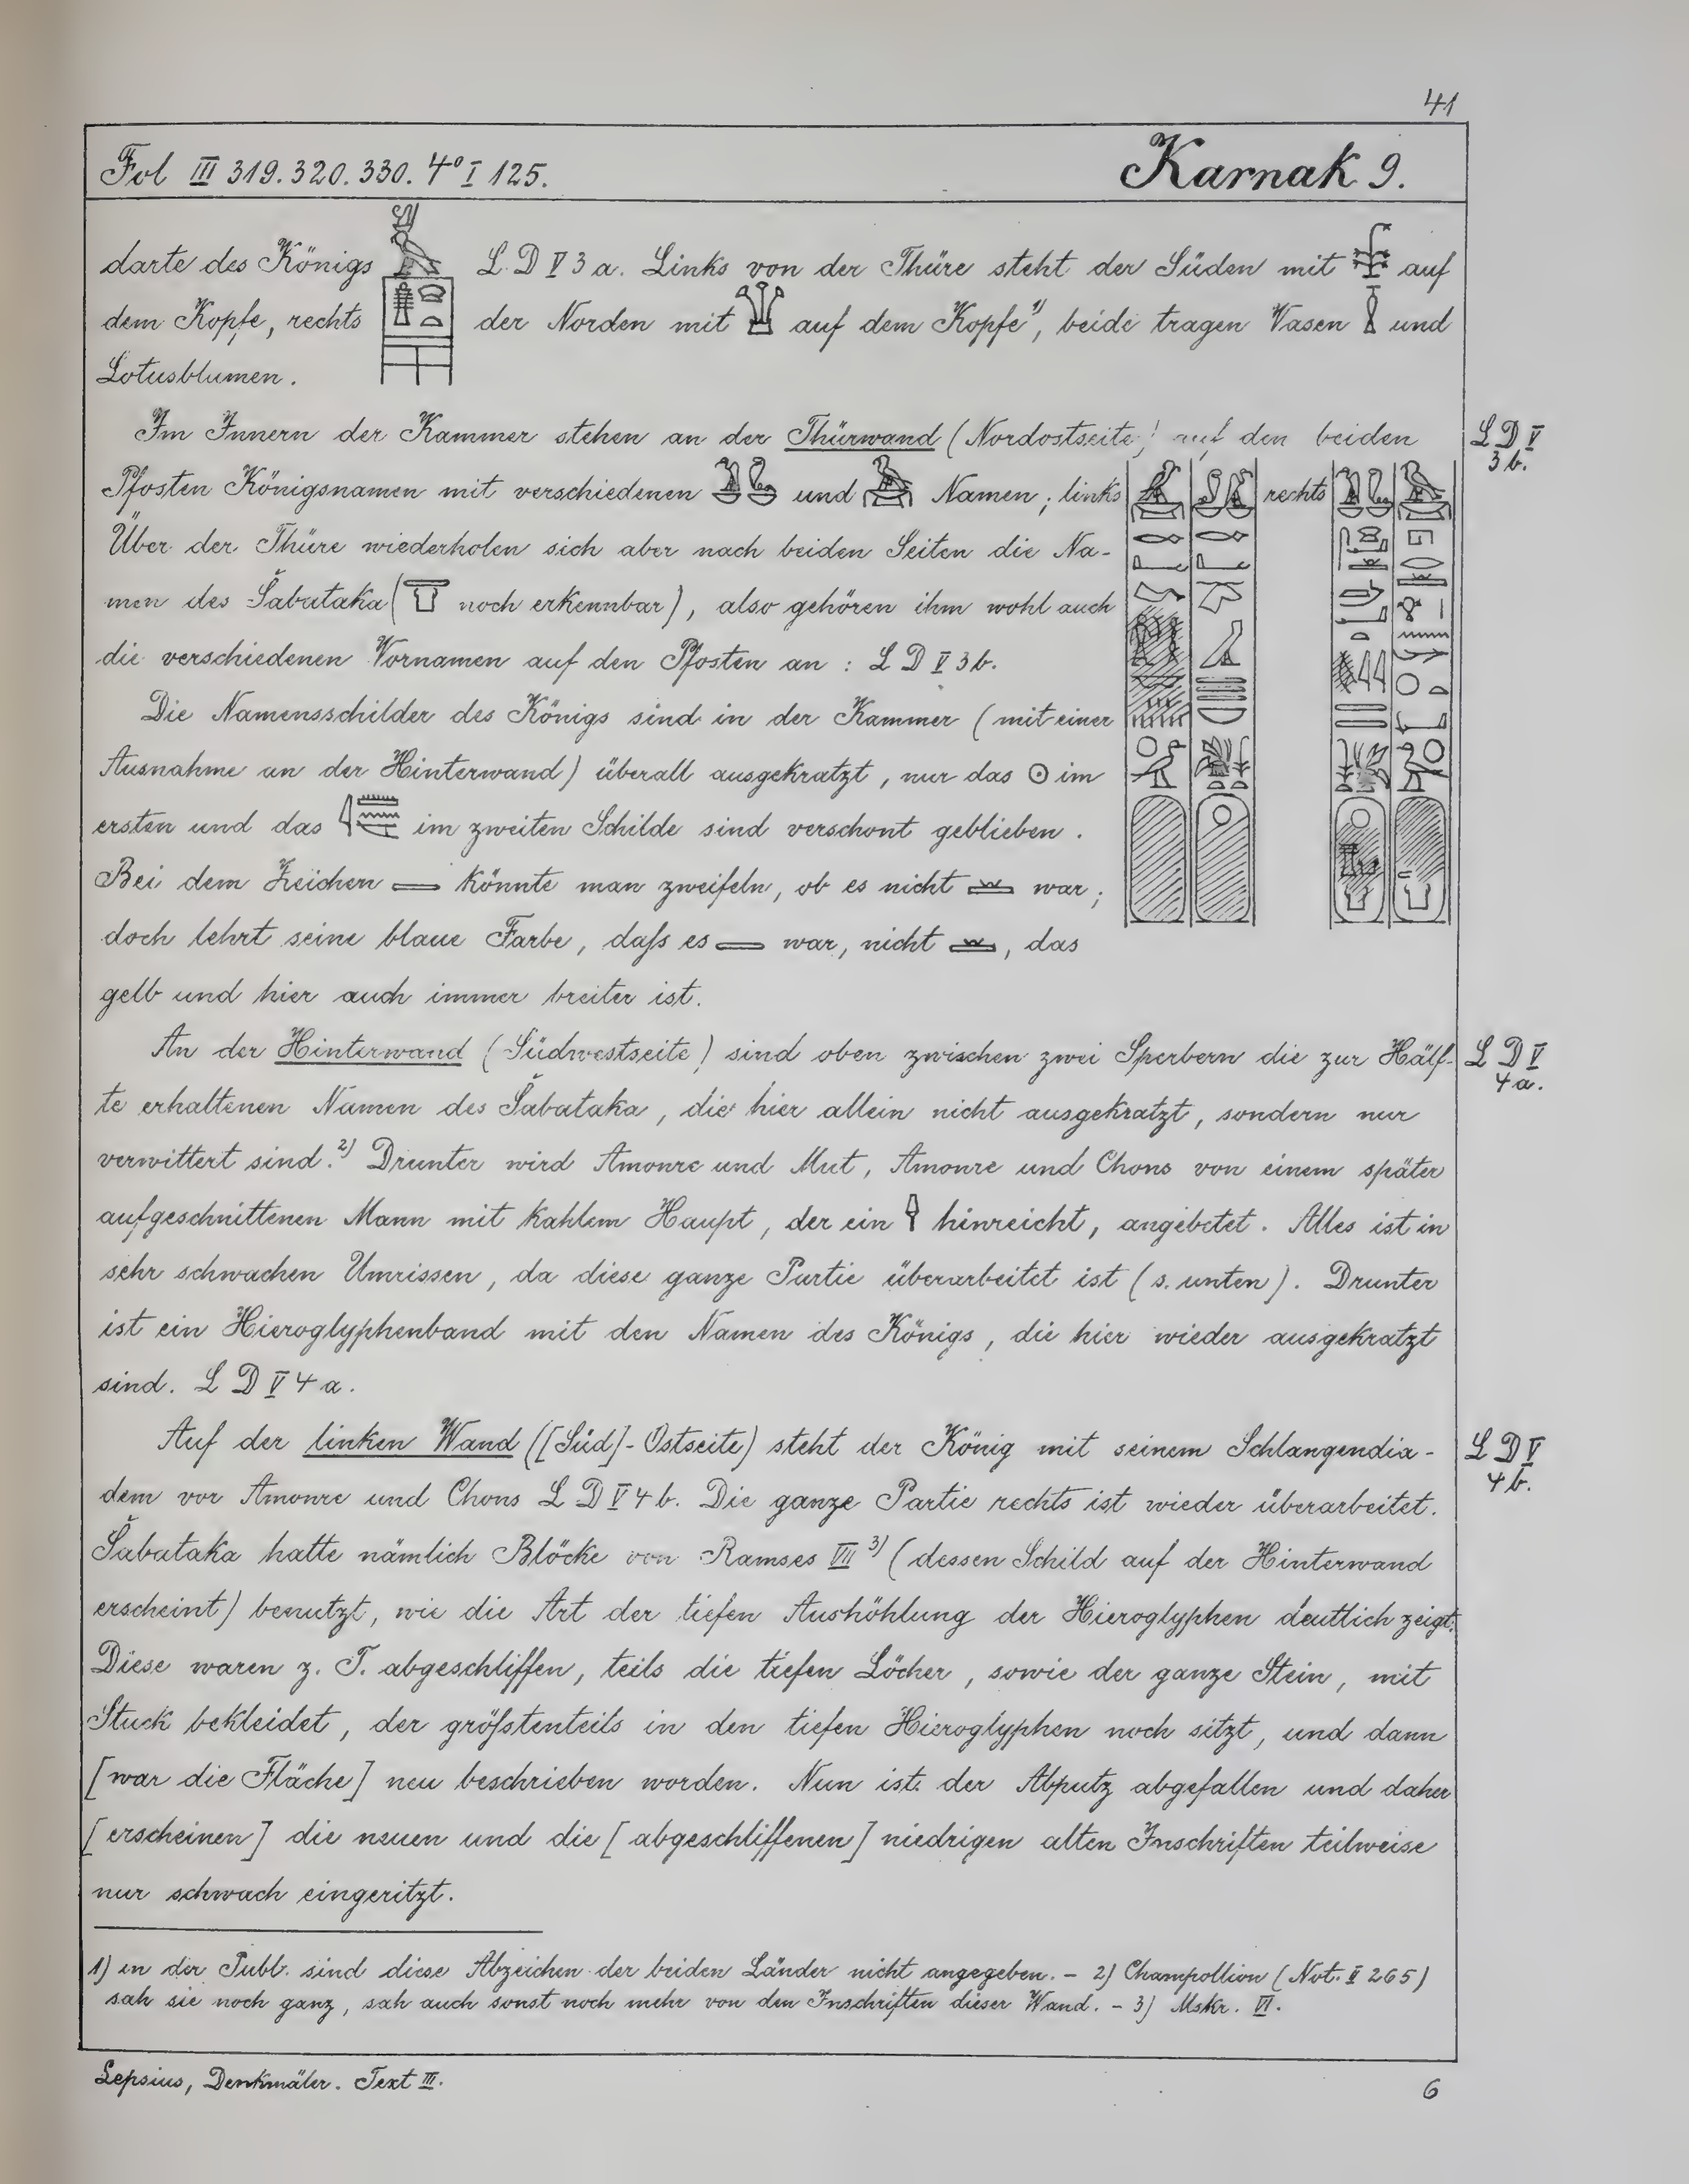 41
Fol III 319. 320. 330. 4° I 125.
Karnak 9.
darte des Königs L D V 3 a. Links von der Thüre steht der Süden mit auf
dem Kopfe, rechts der Norden mit auf dem Kopfe 1), beide tragen Vasen und
Lotusblumen.
Im Innern der Kammer stehen an der Thürwand (Nordostseite) auf den beiden
L D V
3 b.
Pfosten Königsnamen mit verschiedenen und Namen; links rechts
Über der Thüre wiederholen sich aber nach beiden Seiten die Na-
men des Šabataka ( noch erkennbar), also gehören ihm wohl auch
die verschiedenen Vornamen auf den Pfosten an : L D V 3 b.
Die Namensschilder des Königs sind in der Kammer (mit einer
Ausnahme an der Hinterwand) überall ausgekratzt, nur das im
ersten und das im zweiten Schilde sind verschont geblieben.
Bei dem Zeichen könnte man zweifeln, ob es nicht war;
doch lehrt seine blaue Farbe, daſs es war, nicht , das
gelb und hier auch immer breiter ist.
An der Hinterwand (Südwestseite) sind oben zwischen zwei Sperbern die zur Hälf-
L D V
4 a.
te erhaltenen Namen des Šabataka, die hier allein nicht ausgekratzt, sondern nur
verwittert sind. 2) Drunter wird Amonre und Mut, Amonre und Chons von einem später
aufgeschnittenen Mann mit kahlem Haupt, der ein hinreicht, angebetet. Alles ist in
sehr schwachen Umrissen, da diese ganze Partie überarbeitet ist (s. unten). Drunter
ist ein Hieroglyphenband mit den Namen des Königs, die hier wieder ausgekratzt
sind. L D V 4 a.
Auf der linken Wand ([Süd]-Ostseite) steht der König mit seinem Schlangendia-
L D V
4 b.
dem vor Amonre und Chons L D V 4 b. Die ganze Partie rechts ist wieder überarbeitet.
Šabataka hatte nämlich Blöcke von Ramses VII 3) (dessen Schild auf der Hinterwand
erscheint) benutzt, wie die Art der tiefen Aushöhlung der Hieroglyphen deutlich zeigt.
Diese waren z. T. abgeschliffen, teils die tiefen Löcher, sowie der ganze Stein, mit
Stuck bekleidet, der gröſstenteils in den tiefen Hieroglyphen noch sitzt, und dann
[war die Fläche] neu beschrieben worden. Nun ist der Abputz abgefallen und daher
[erscheinen] die neuen und die [abgeschliffenen] niedrigen alten Inschriften teilweise
nur schwach eingeritzt.
1) in der Publ. sind diese Abzeichen der beiden Länder nicht angegeben. – 2) Champollion (Not. II 265)
sah sie noch ganz, sah auch sonst noch mehr von den Inschriften dieser Wand. – 3) Mskr. VI.
Lepsius, Denkmäler. Text III.
6